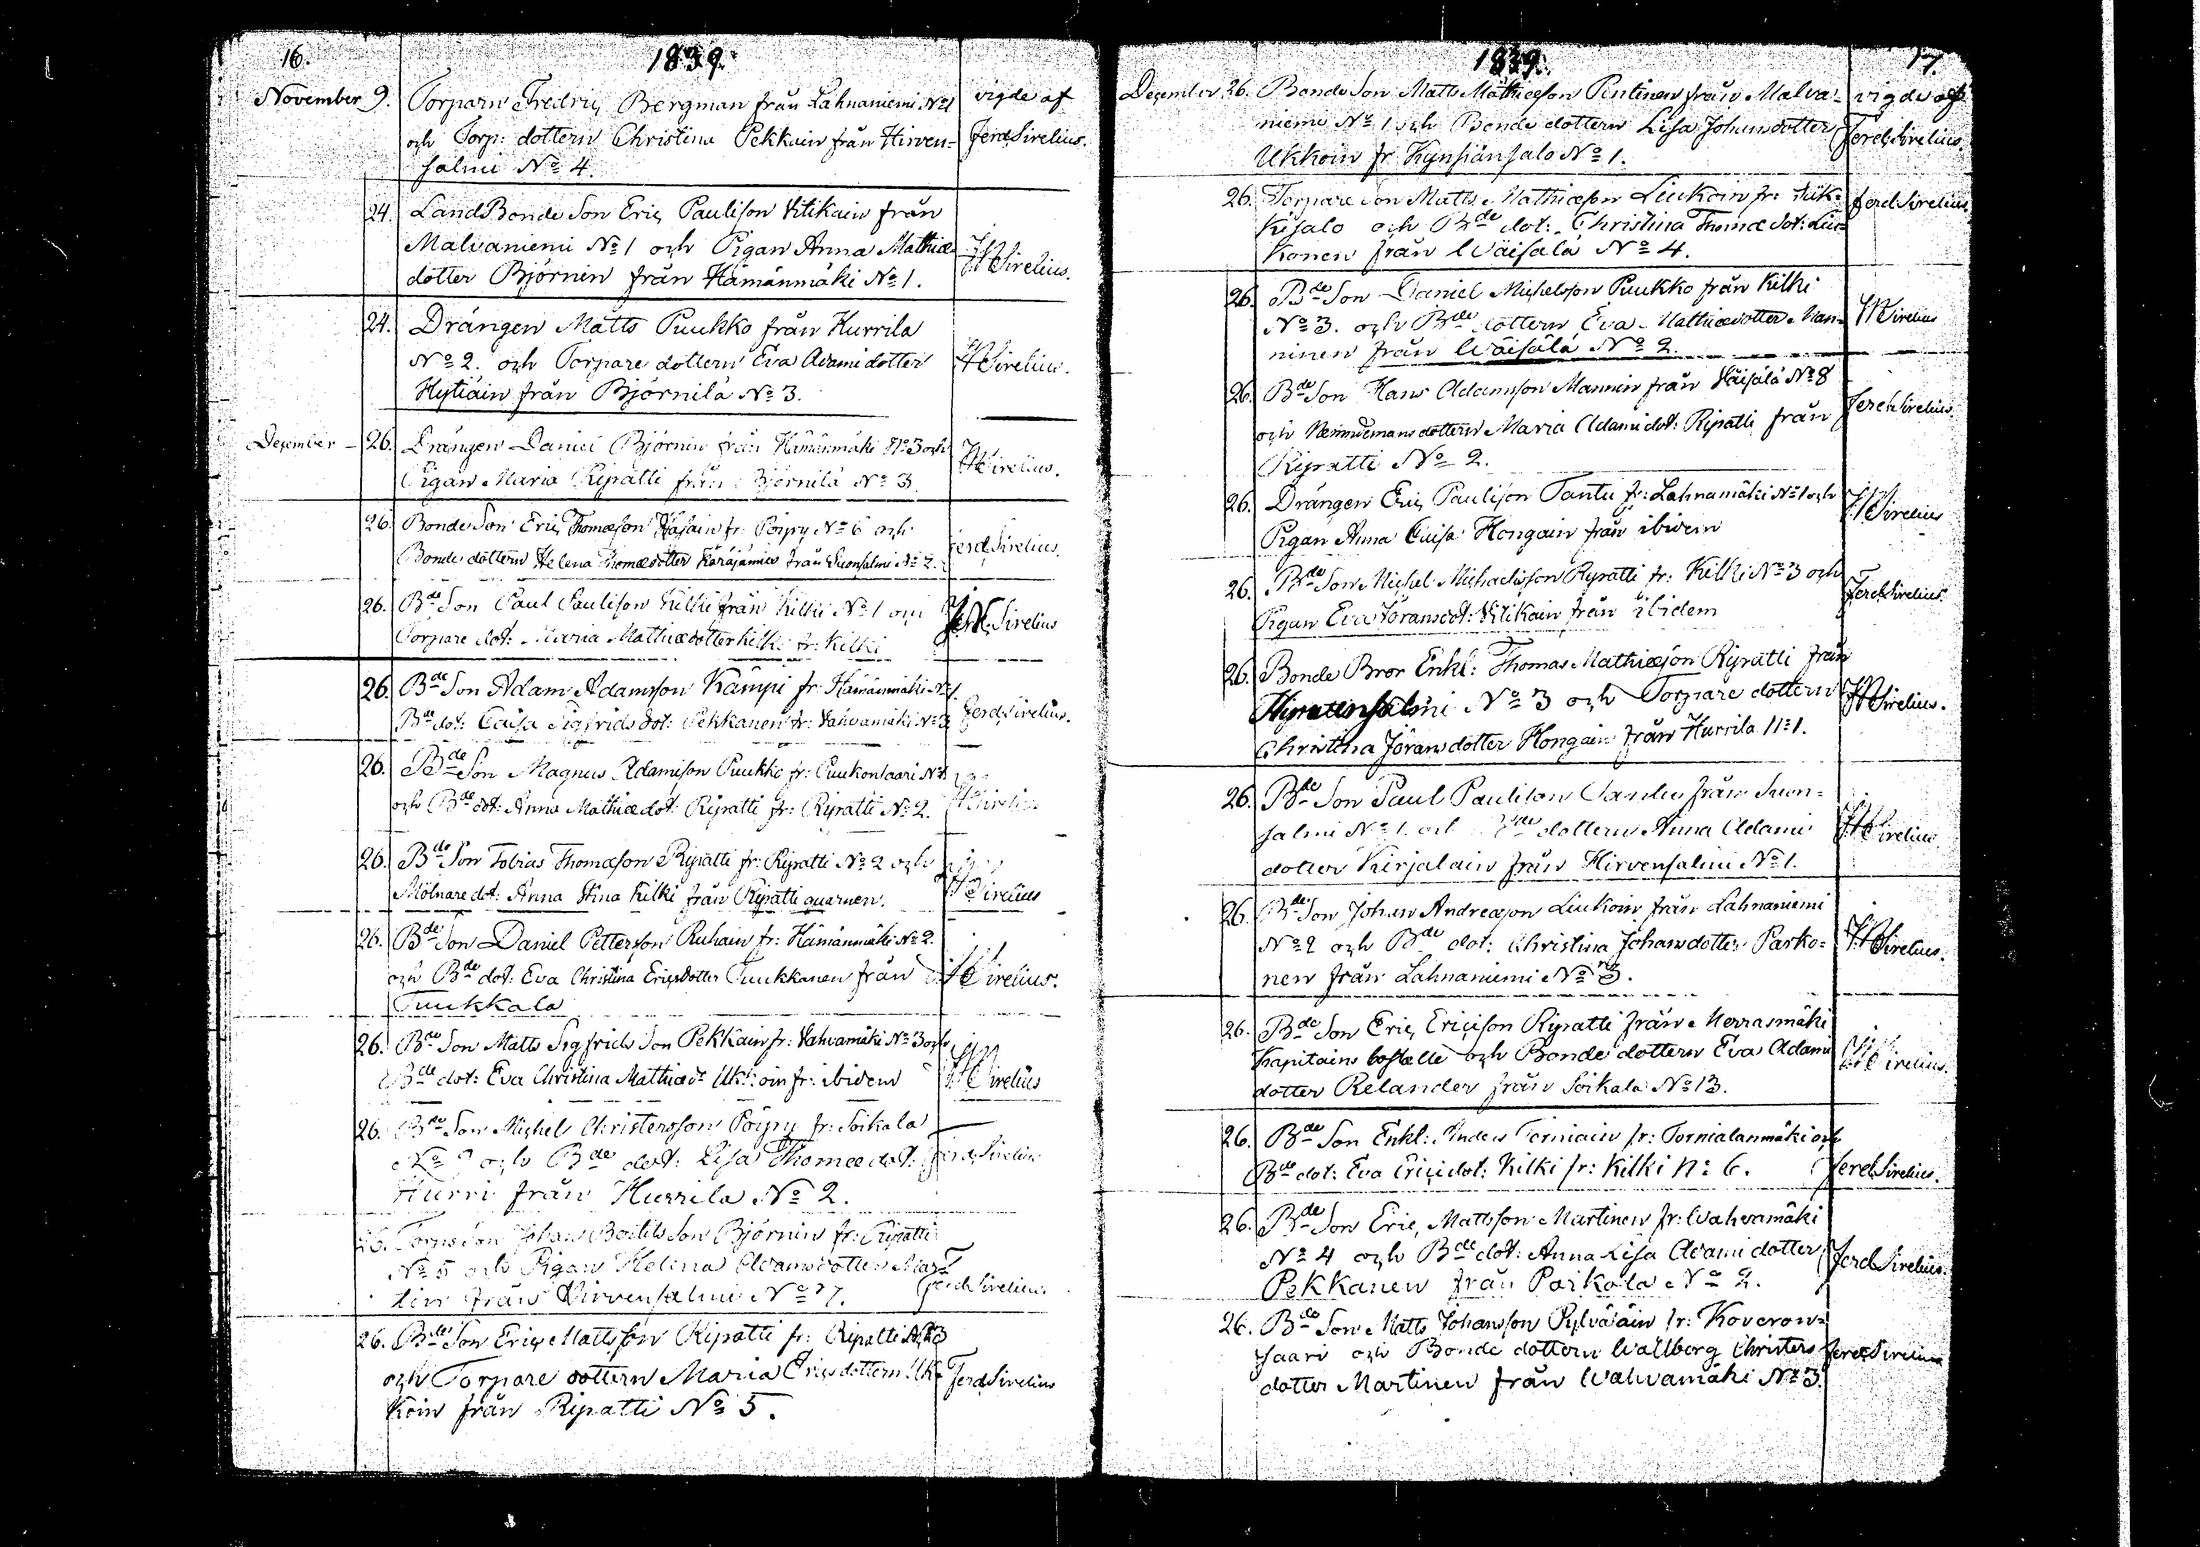 16.
1839.
November 9. Torparn Fredric Bergman från Lahnaniemi No 1 vigde af
och Torp: dottern Christina Pekkain från Hirven= Ferd Sirelius.
salmi No 4.
24. LandBonde Son Eric Paulison Kitikain från
Malvaniemi No 1 och Pigan Anna Mathiæ
dotter Björnin från Hämänmäki No 1. Sirelius.
24. Drängen Matts Puukko från Hurrila
No 2. och Torpare dottern Eva Adami dotter Sirelius.
Hytiäin från Björnilä No 3.
December 26. Drängen Daniel Björnin från Hämänmäki No 3 och
Pigan Maria Ripatti från Björnilä No 3 Sirelius.
26. Bonde Son Eric Thomæson fr: Pöyry No 6 och
Bonde dottern Helena Thomædotter från Suonsalmi No 2. Ferd Sirelius.
26. Bde Son Paul Paulison Kilki från Kilki No 1 och
Torpare dot: Maria Mathiædotter Kilki fr: Kilki Sirelius
26. Bde Son Adam Adamsson Kämpi fr: Hämänmäki No 1.
Bde dot: Caisa Sigfrids dot: Pekkanen fr: Vahvamäki No 3 Ferd Sirelius.
26. Bde Son Magnus Adamison Puukko fr: Puukonsaari No 1
och Bde dot: Anna Mathiædot: Ripatti fr: Ripatti No 2. Sirelius
26. Bde Son Tobias Thomæson Ripatti fr: Ripatti No 2 och
Mölnare dot: Anna Stina Kilki från Ripatti quarnen. Sirelius
26. Bde Son Daniel Petterson Ruhain fr: Hämänmäki No 2.
och Bde dot: Eva Christina Ericsdotter Tuukkanen från Sirelius.
Tuukkala
26. Bde Son Matts Sigfrids Son Pekkain fr: Vahvamäki No 3 och
Bde dot: Eva Christina Mathiædr Ukkoin fr: ibidem Sirelius
26. Bde Son Michel Christersson Pöyry fr: Soikala
No och Bde dot: Lisa Thomædot: Ferd Sirelius
Hurri från Hurrila No 2.
26. Torp: Son Johan Bertils Son Björnin fr: Ripatti
No 5 och Pigan Helena Adamsdotter Mart
tin från Hirvensalmi No 7. Ferd Sirelius.
26. Bde Son Eric Mattsson Ripatti fr: Ripatti No 3
och Torpare dottern Maria Ericsdottern Uk= Ferd Sirelius
koin från Ripatti No 5.
17.
1839.
December 26. Bonde Son Matts Mathiæson Pentinen från Malva= vigde af
niemi No 1 och Bonde dottern Lisa Johansdotter Ferd Sirelius.
Ukkoin fr. Kynsiänsalo No 1.
26. Torpare Son Matts Mathiæson Liukoin fr: Suk= Ferd Sirelius
kisalo och Bde dot: Christina Thomæ dot: Liu=
konen från Wäisälä No 4.
26. Bde Son Daniel Michelsson Puukko från Kilki
No 3. och Bde dottern Eva Mathiædotter Man= Sirelius
ninen från Wäisälä No 2.
26. Bde Son Hans Adamsson Mannin från Väisälä No 8
och Nämndemans dottern Maria Adami dot: Ripatti från Ferd Sirelius.
Ripatti No 2.
26. Drängen Eric Paulison Tantu fr: Lahnamäki No 1 och
Pigan Anna Caisa Hongain från ibidem Sirelius
26. Bde Son Michel Michaelisson Ripatti fr: Kilki No 3 och
Pigan Eva Jöransdot: Kitikain från ibidem Ferd Sirelius.
26. Bonde Bror Enkl: Thomas Mathiæson Ripatti från
Hirvensalmi No 3 och Torpare dottern Sirelius.
Christina Jöransdotter Hongain från Hurrila No 1.
26. Bde Son Paul Paulison från Suon=
salmi No 1. och Bde dottern Anna Adami Sirelius
dotter Kirjalain från Hirvensalmi No 1.
26. Bde Son Johan Andreæson Liukoin från Lahnaniemi
No 2 och Bde dot: Christina Johansdotter Parko= Sirelius.
nen från Lahnaniemi No 3.
26. Bde Son Eric Ericison Ripatti från Herrasmäki
Kapitains boställe och Bonde dottern Eva Adami Sirelius.
dotter Relander från Soikala No 13.
26. Bde Son Enkl: Anders Torniain fr: Tornialanmäki och
Bde dot: Eva Ericidot: Kilki fr: Kilki No 6. Ferd Sirelius.
26. Bde Son Eric Mattsson Martinen fr: Wahvamäki
No 4 och Bde dot: Anna Lisa Adami dotter Ferd Sirelius.
Pekkanen från Poikola No 2.
26. Bde Son Matts Johansson Pylväläin fr: Koveron=
saari och Bonde dottern Wallborg Christers Ferd Sirelius
dotter Martinen från Wahvamäki No 3.